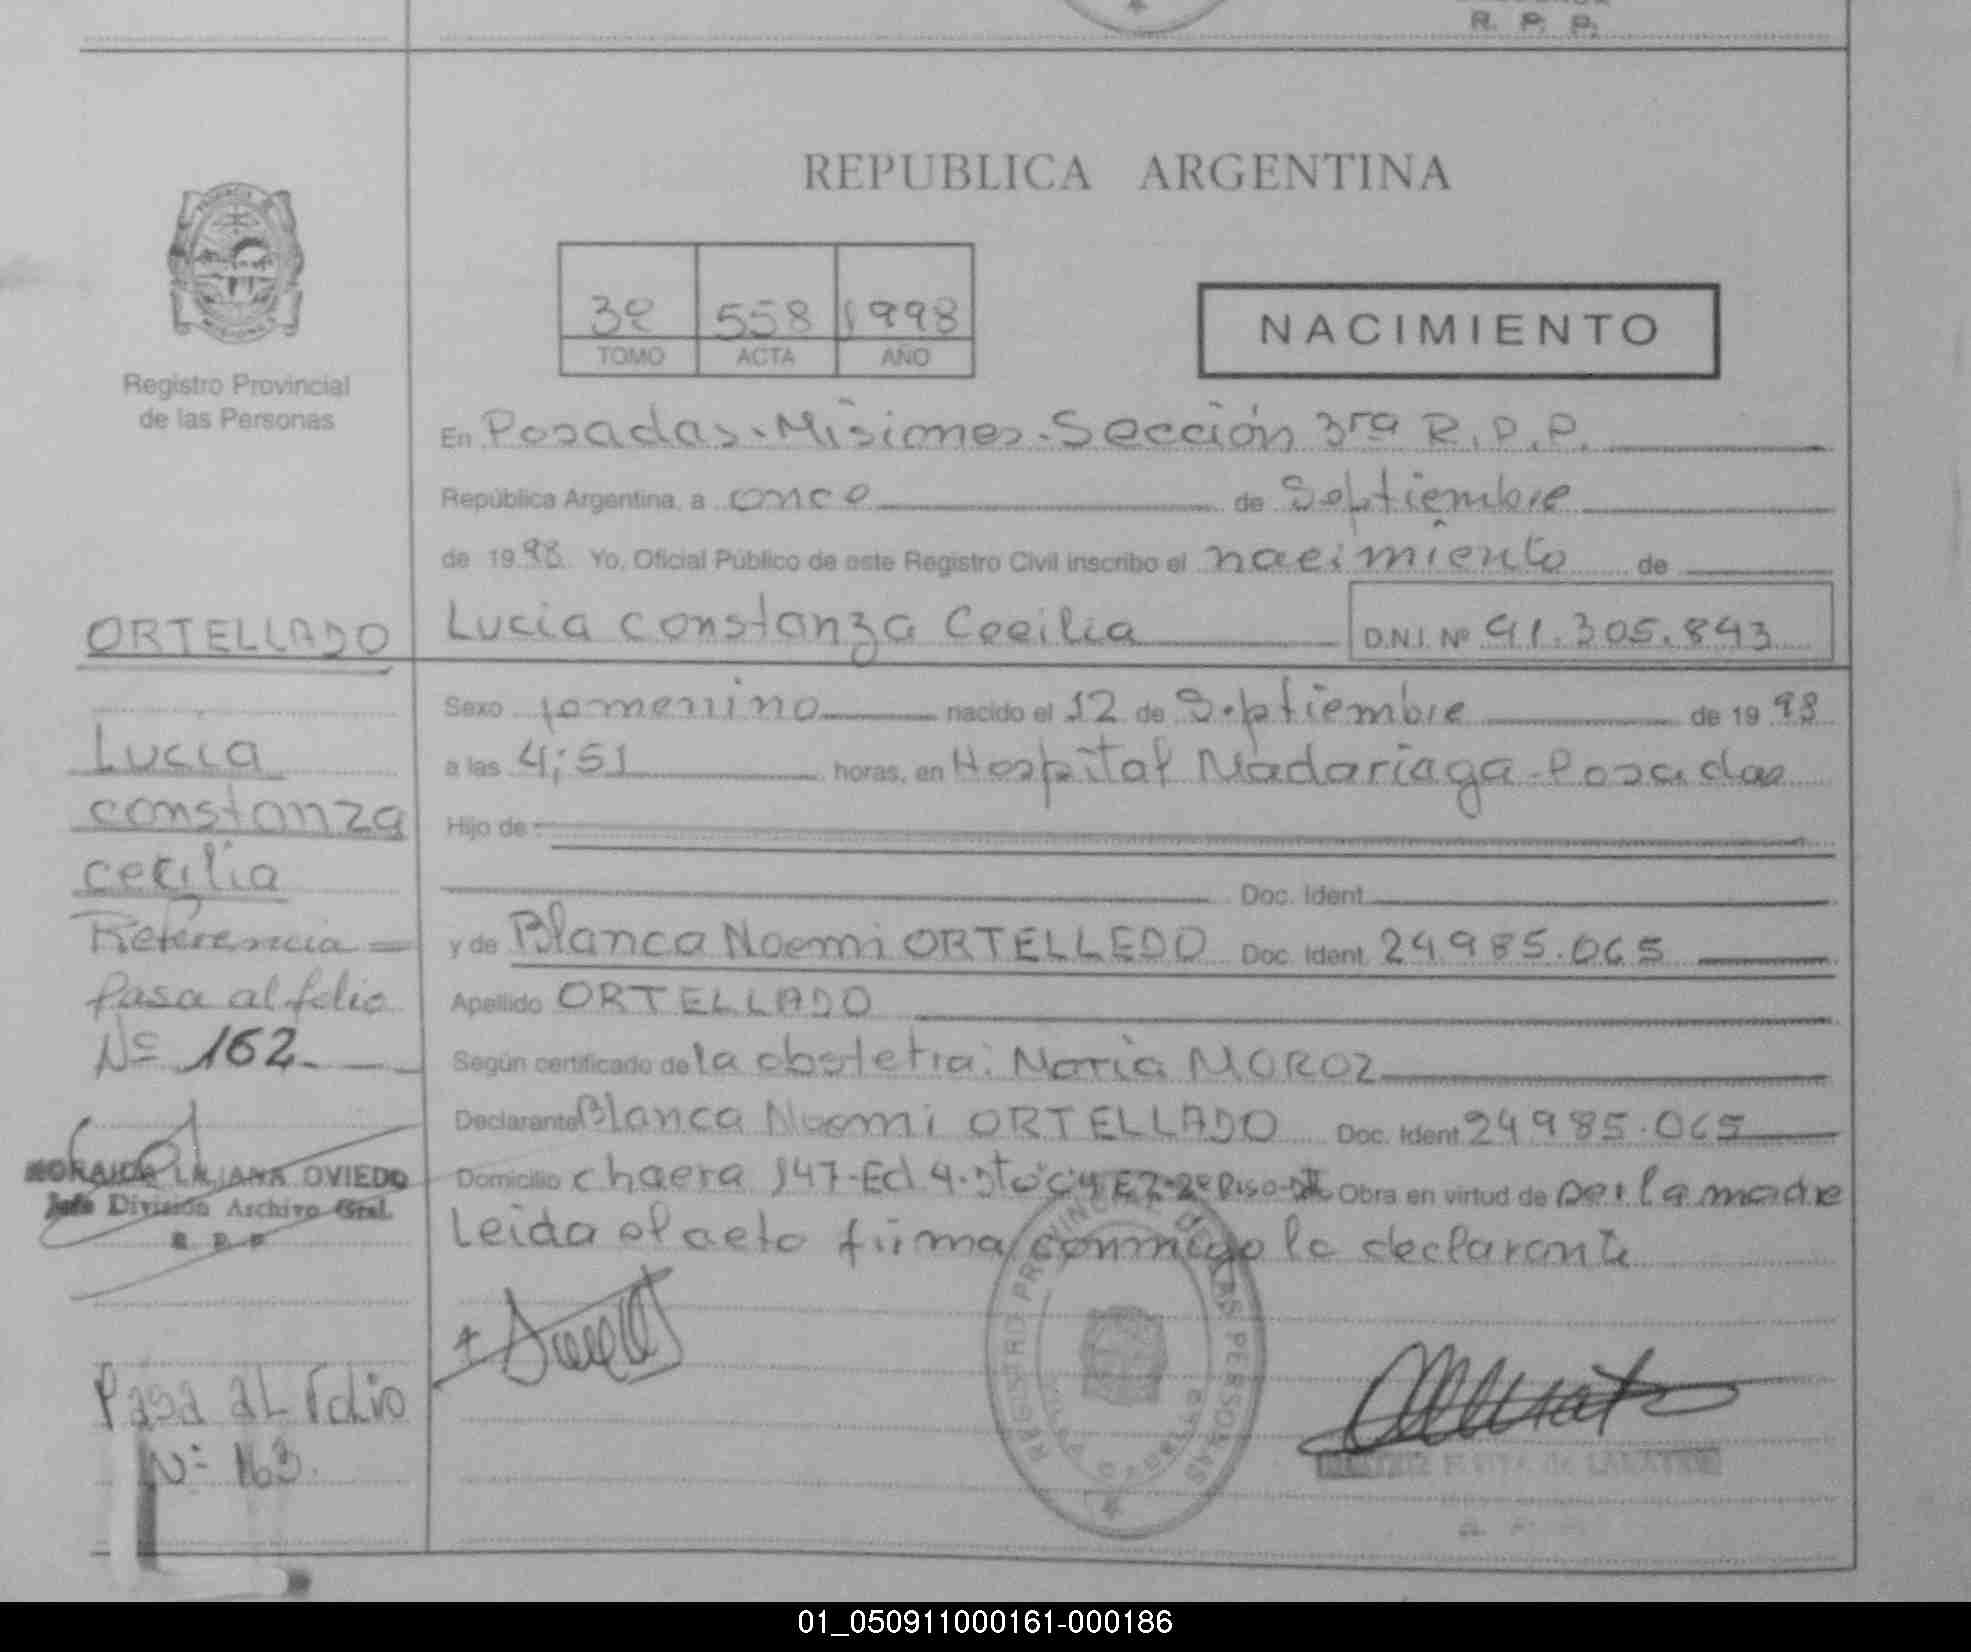 R. P. P.
REPUBLICA ARGENTINA
3º 558 1998
TOMO ACTA AÑO
NACIMIENTO
Registro Provincial
de las Personas
En Posadas-Misiones-Sección 3ra R.P.P.
República Argentina, a once de Septiembre
de 1998 Yo, Oficial Público de este Registro Civil inscribo el nacimiento de
ORTELLADO
Lucia Constanza Cecilia D.N.I. Nº 41.305.843
Sexo femenino nacido el 12 de Septiembre de 1998
a las 4:51 horas, en Hospital Madariaga-Posadas
Lucia
constanza
cecilia
Hijo de
Doc. Ident.
y de Blanca Noemi ORTELLEDO Doc. Ident. 24985.065
Apellido ORTELLADO
Según certificado de la obstetra: Maria MOROZ
Declarante Blanca Noemi ORTELLADO Doc. Ident. 24985.065
Domicilio chacra 147-Ed 4- 2º Piso Obra en virtud de ser la madre
Leida el acto firma conmigo la declarante
Referencia
Pasa al folio
Nº 162
LILIANA OVIEDO
Jefe División Archivo Gral.
R P P
Pasa al Folio
Nº 163.
REGISTRO PROVINCIAL DE LAS PERSONAS
01_050911000161-000186